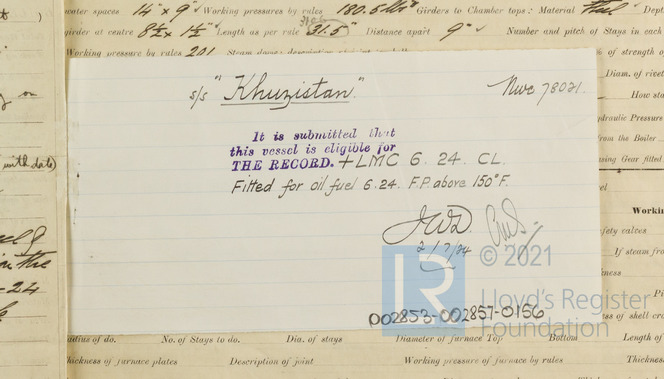 water spaces 14" x 9" Working pressures by rules 180.5 lbs Girders to Chamber tops: Material Steel Dept
girder at centre 8½ x 1½" Length as per rule 31.5" Distance apart 9" Number and pitch of Stays in each
Working pressure by rules 201
of strength of
Diam. of rivet
How sta
ydraulic Pressure
from the Boiler
sing Gear fitted
s/s "Khuzistan" Nwc 78021
It is submitted that
this vessel is eligible for
THE RECORD. + LMC 6. 24. CL.
Fitted for oil fuel 6.24. F.P. above 150°F.
JWD
2/7/24
© 2021
LR
Lloyd's Register
Foundation
002853-002857-0156
with date)
-24
Worki
fety valves
If steam fro
of shell cr
radius of do. No. of Stays to do. Dia. of stays Diameter of furnace Top Bottom Length of
thickness of furnace plates Description of joint Working pressure of furnace by rules Thickness